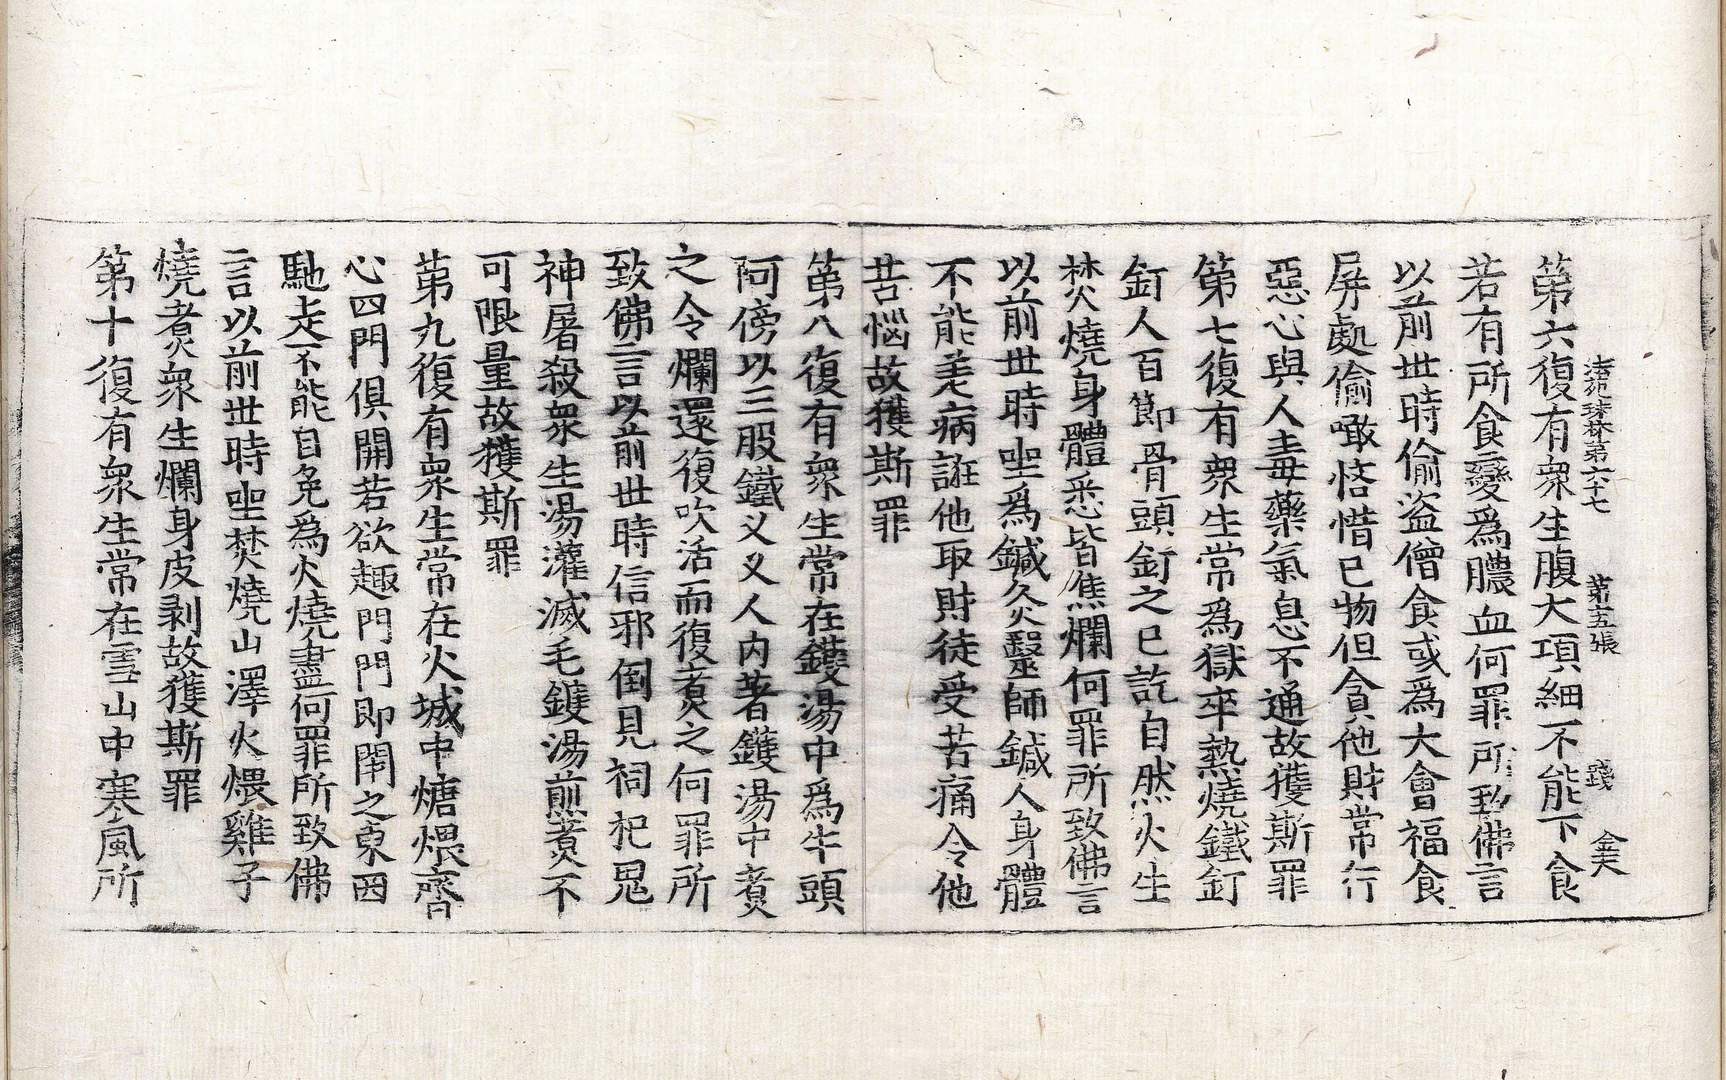 第六復有衆生腹大項細不能下食
法苑珠林第六十七　第十五張　㦮　金天
若有所食變爲膿血何罪所致佛言
以前世時偷盜僧食或爲大會福食
屏處偷噉悋惜己物但貪他財常行
惡心與人毒藥氣息不通故獲斯罪
第七復有衆生常爲獄卒熱燒鐵釘
釘人百節骨頭釘之已訖自然火生
焚燒身體悉皆焦爛何罪所致佛言
以前世時坐爲鍼灸毉師鍼人身體
不能差病誑他取財徒受苦痛令他
苦惱故獲斯罪
第八復有衆生常在鑊湯中爲牛頭
阿傍以三股鐵叉叉人内著鑊湯中煑
之令爛還復吹活而復煑之何罪所
致佛言以前世時信邪倒見祠祀鬼
神屠殺衆生湯灌滅毛鑊湯煎煑不
可限量故獲斯罪
第九復有衆生常在火城中煻煨齊
心四門俱開若欲趣門門即閇之東西
馳走不能自免爲火燒盡何罪所致佛
言以前世時坐焚燒山澤火煨雞子
燒煑衆生爛身皮剥故獲斯罪
第十復有衆生常在雪山中寒風所